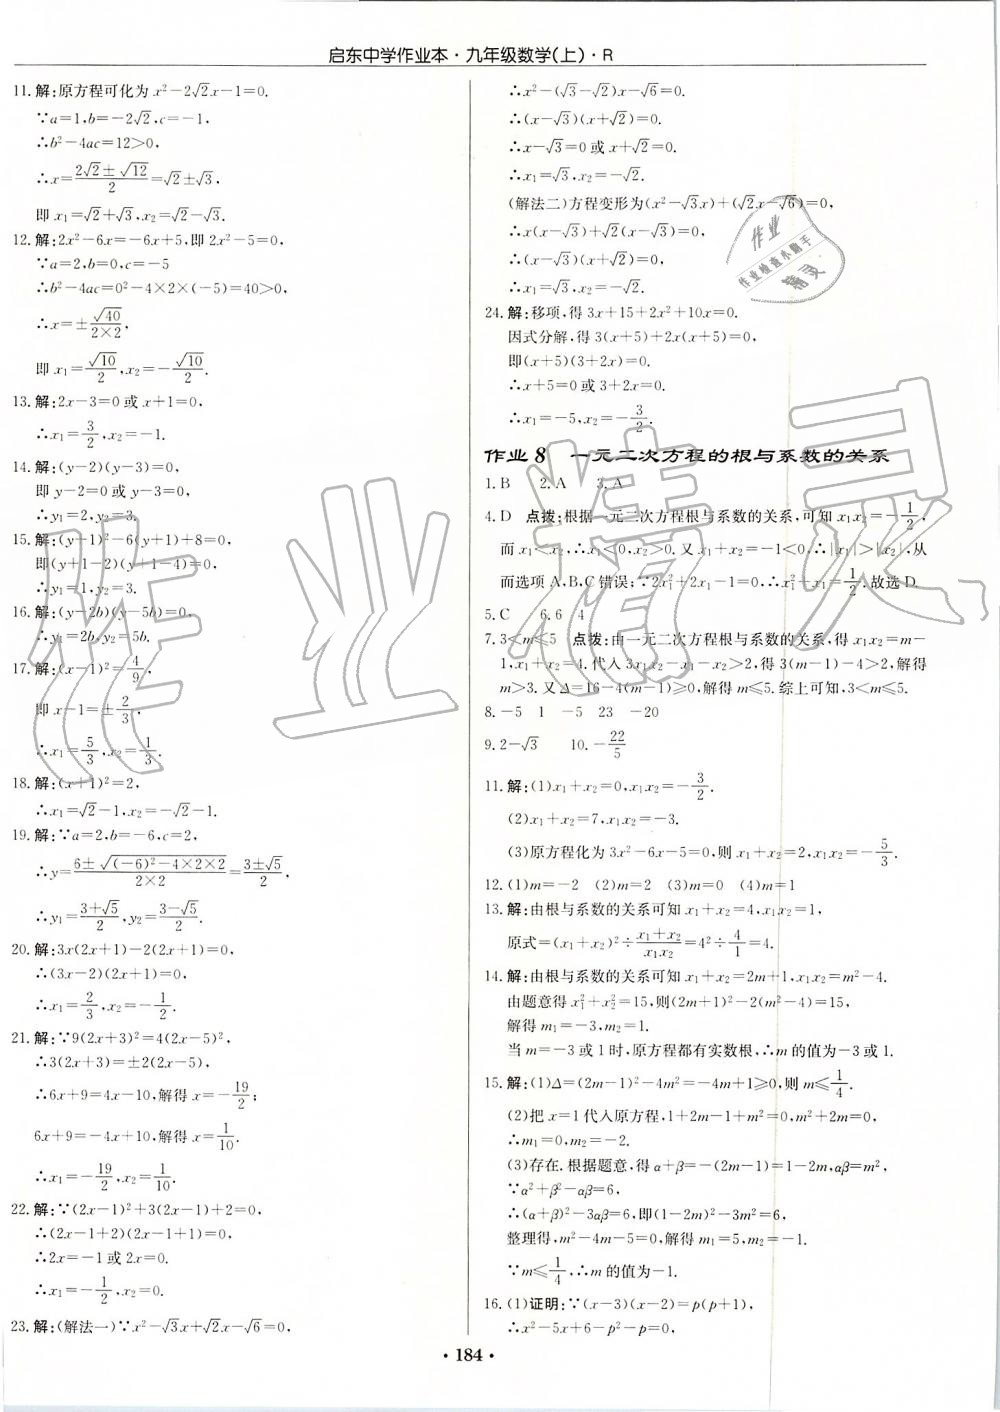 启东中学作业本·九年级数学(上)·R
11.解:原方程可化为 x²-2√2x-1=0.
∵a=1,b=-2√2,c=-1,
∴b²-4ac=12>0,
∴x=(2√2±√12)/2=√2±√3,
即 x₁=√2+√3,x₂=√2-√3.
12.解:2x²-6x=-6x+5,即 2x²-5=0,
∵a=2,b=0,c=-5
∴b²-4ac=0²-4×2×(-5)=40>0,
∴x=±√40/(2×2),
即 x₁=√10/2,x₂=-√10/2.
13.解:2x-3=0 或 x+1=0,
∴x₁=3/2,x₂=-1.
14.解:(y-2)(y-3)=0,
即 y-2=0 或 y-3=0,
∴y₁=2,y₂=3.
15.解:(y+1)²-6(y+1)+8=0,
即(y+1-2)(y+1-4)=0,
∴y₁=1,y₂=3.
16.解:(y-2b)(y-5b)=0,
∴y₁=2b,y₂=5b.
17.解:(x-1)²=4/9,
即 x-1=±2/3,
∴x₁=5/3,x₂=1/3.
18.解:(x+1)²=2,
∴x₁=√2-1,x₂=-√2-1.
19.解:∵a=2,b=-6,c=2,
∴y=(6±√((-6)²-4×2×2))/(2×2)=(3±√5)/2,
∴y₁=(3+√5)/2,y₂=(3-√5)/2.
20.解:3x(2x+1)-2(2x+1)=0,
∴(3x-2)(2x+1)=0,
∴x₁=2/3,x₂=-1/2.
21.解:∵9(2x+3)²=4(2x-5)²,
∴3(2x+3)=±2(2x-5),
∴6x+9=4x-10,解得 x=-19/2;
6x+9=-4x+10,解得 x=1/10.
∴x₁=-19/2,x₂=1/10.
22.解:∵(2x-1)²+3(2x-1)+2=0,
∴(2x-1+2)(2x-1+1)=0,
∴2x=-1 或 2x=0.
∴x₁=-1/2,x₂=0.
23.解:(解法一)∵x²-√3x+√2x-√6=0,
∴x²-(√3-√2)x-√6=0.
∴(x-√3)(x+√2)=0.
∴x-√3=0 或 x+√2=0.
∴x₁=√3,x₂=-√2.
(解法二)方程变形为(x²-√3x)+(√2x-√6)=0,
∴x(x-√3)+√2(x-√3)=0,
∴(x-√3)(x+√2)=0,
∴x₁=√3,x₂=-√2.
24.解:移项,得 3x+15+2x²+10x=0.
因式分解,得 3(x+5)+2x(x+5)=0,
即(x+5)(3+2x)=0.
∴x+5=0 或 3+2x=0.
∴x₁=-5,x₂=-3/2.
作业 8 一元二次方程的根与系数的关系
1.B 2.A 3.A
4.D 点拨:根据一元二次方程根与系数的关系,可知 x₁x₂=-1/2,
而 x₁<x₂,∴x₁<0,x₂>0.又 x₁+x₂=-1<0,∴|x₁|>|x₂|,从
而选项 A,B,C 错误;∵2x₁²+2x₁-1=0,∴x₁²+x₁=1/2.故选 D.
5.C 6.6 4
7.3<m≤5 点拨:由一元二次方程根与系数的关系,得 x₁x₂=m-
1,x₁+x₂=4.代入 3x₁x₂-x₁-x₂>2,得 3(m-1)-4>2,解得
m>3.又Δ=16-4(m-1)≥0,解得 m≤5.综上可知,3<m≤5.
8.-5 1 -5 23 -20
9.2-√3 10.-22/5
11.解:(1)x₁+x₂=0,x₁x₂=-3/2.
(2)x₁+x₂=7,x₁x₂=-3.
(3)原方程化为 3x²-6x-5=0,则 x₁+x₂=2,x₁x₂=-5/3.
12.(1)m=-2 (2)m=2 (3)m=0 (4)m=1
13.解:由根与系数的关系可知 x₁+x₂=4,x₁x₂=1,
原式=(x₁+x₂)²÷(x₁+x₂)/(x₁x₂)=4²÷4/1=4.
14.解:由根与系数的关系可知 x₁+x₂=2m+1,x₁x₂=m²-4.
由题意得 x₁²+x₂²=15,则(2m+1)²-2(m²-4)=15,
解得 m₁=-3,m₂=1.
当 m=-3 或 1 时,原方程都有实数根,∴m 的值为-3 或 1.
15.解:(1)Δ=(2m-1)²-4m²=-4m+1≥0,则 m≤1/4.
(2)把 x=1 代入原方程,1+2m-1+m²=0,m²+2m=0,
∴m₁=0,m₂=-2.
(3)存在.根据题意,得 α+β=-(2m-1)=1-2m,αβ=m²,
∵α²+β²-αβ=6,
∴(α+β)²-3αβ=6,即(1-2m)²-3m²=6,
整理得,m²-4m-5=0,解得 m₁=5,m₂=-1.
∵m≤1/4,∴m 的值为-1.
16.(1)证明:∵(x-3)(x-2)=p(p+1),
∴x²-5x+6-p²-p=0,
·184·
作业
作业检查小助手
精灵
作业精灵